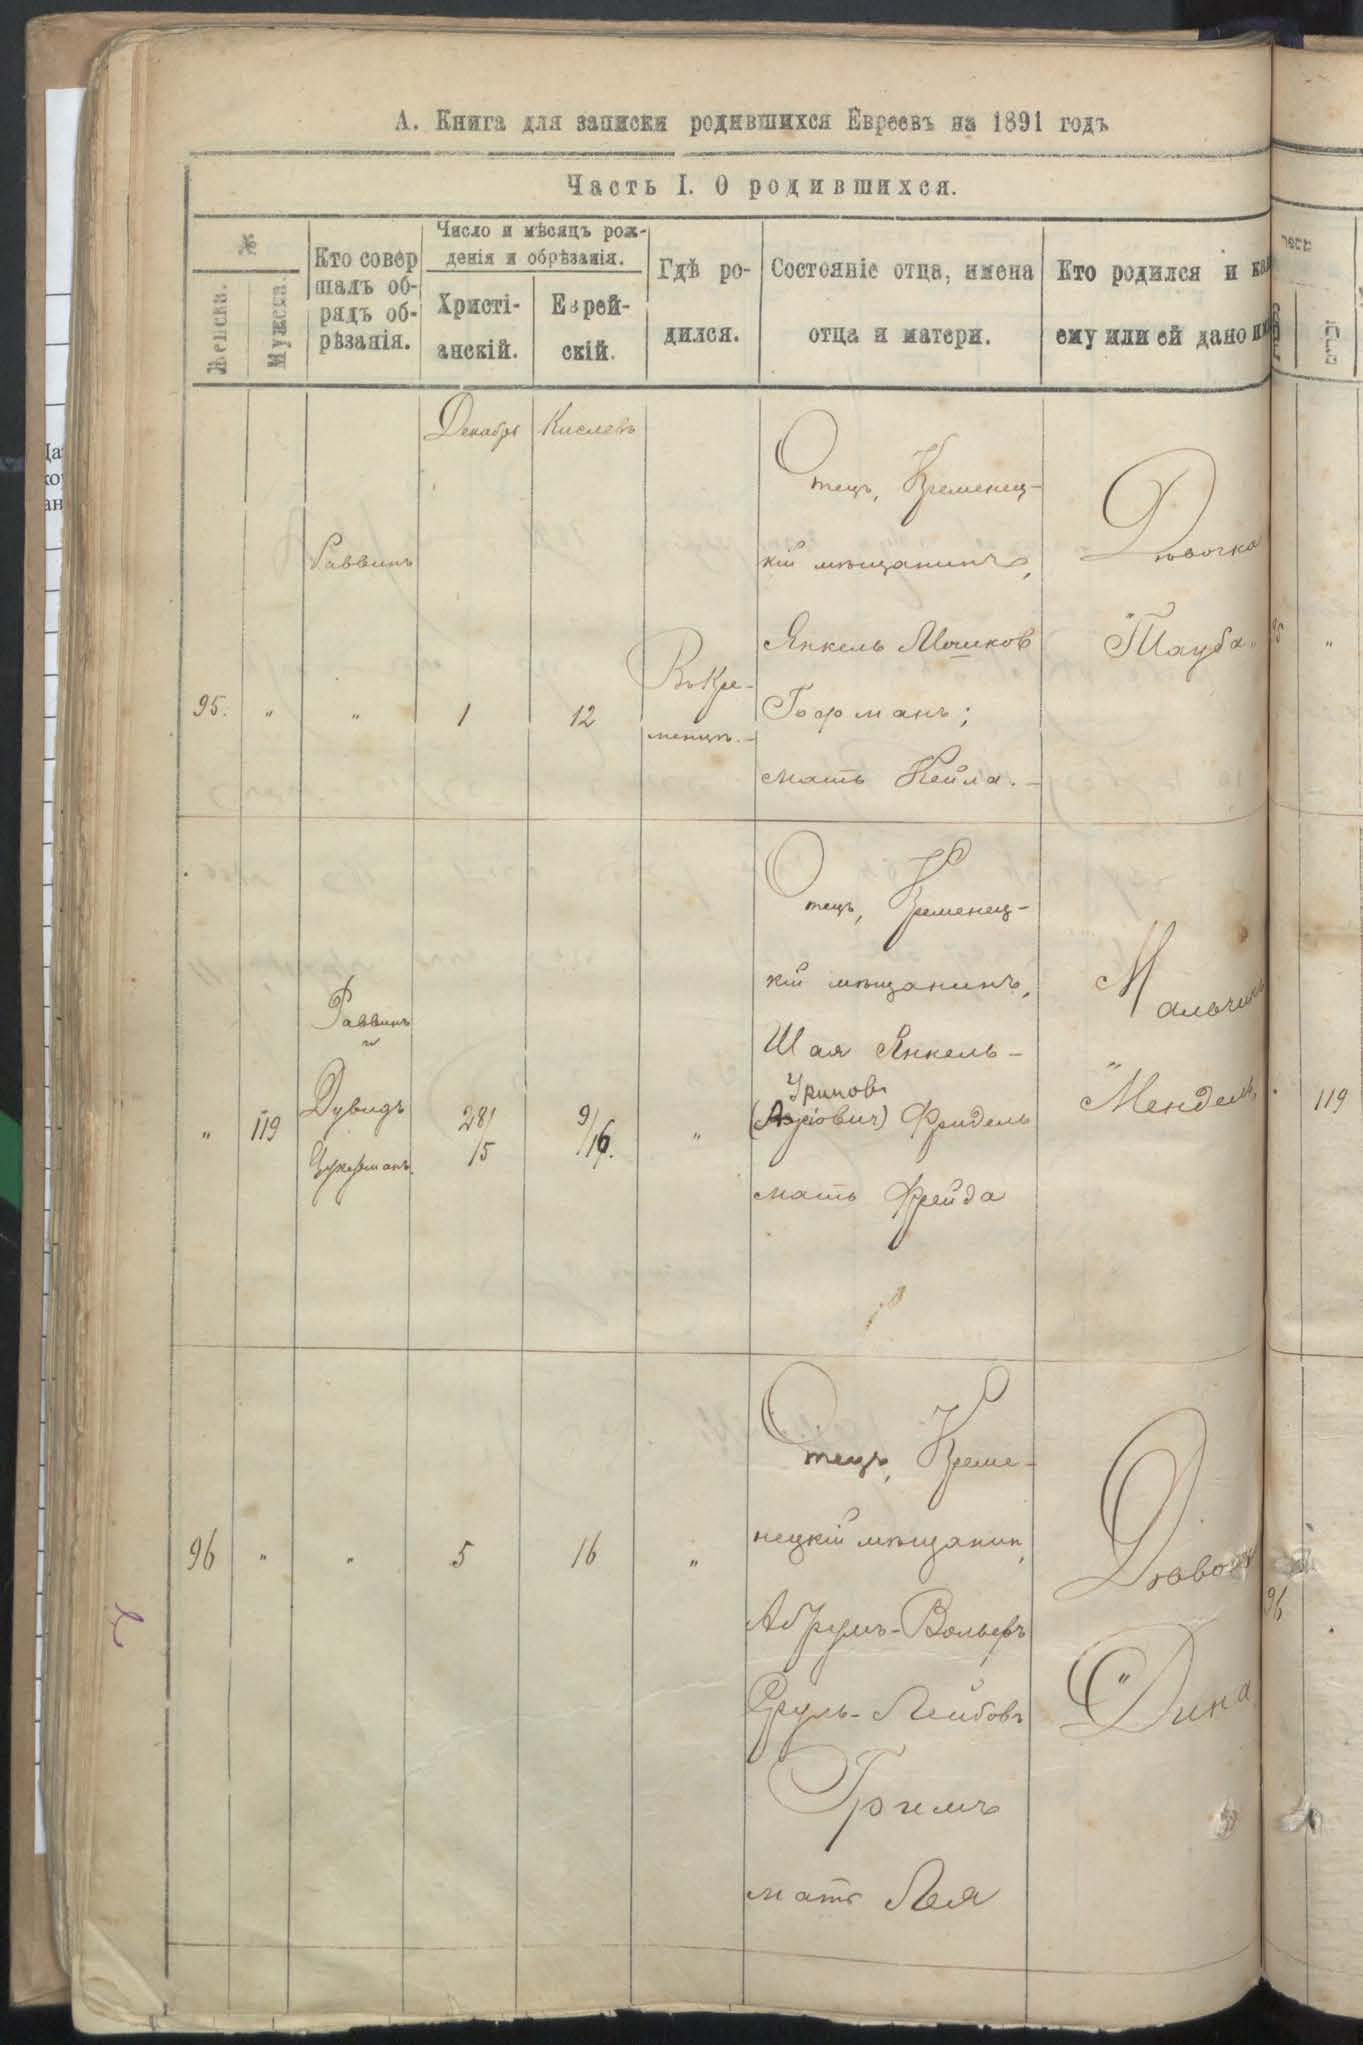 А. Книга для записки родившихся Евреевъ на 1891 годъ
Часть I. О родившихся.
№
Женска.
Мужеска.
Кто совер
шалъ об-
рядъ об-
рѣзанія.
Число и мѣсяцъ рож-
денія и обрѣзанія.
Христі-
анскій.
Еврей-
скій.
Гдѣ ро-
дился.
Состояніе отца, имена
отца и матери.
Кто родился и ка
ему или ей дано
Декабрь
Кислевъ
95.
"
Раввинъ
"
1
12
Въ Кре-
менцѣ.-
Отецъ, Кременец-
кій мѣщанинъ,
Янкель Мошков
Гофманъ;
мать Кейла.-
Дѣвочка
"Тауба"
95
"
"
119
Раввинъ
и
Дувидъ
Цукерманъ.
28/
15
9/
16.
"
Отецъ, Кременец-
кій мѣщанинъ,
Шая Янкель-
Фридель
мать Фрейда
Мальчикъ
"Мендель"
119
96
"
"
5
16
"
Отецъ, Креме-
нецкій мѣщанин,
Абрумъ-Вольфъ
Сруль-Лейбовъ
Гримъ
мать Лея
Дѣвочк
"Дина
96